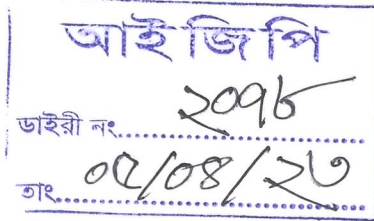 আই জি পি
ডাইরী নং ২০৭৮
তাং ০৫/০৪/২৩